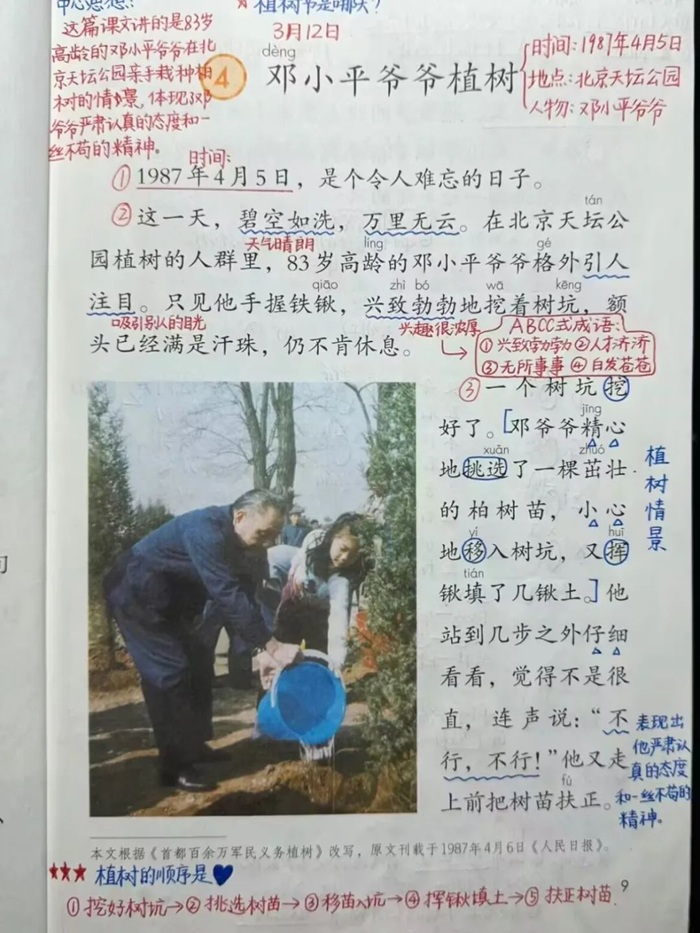 中心思想:
这篇课文讲的是83岁
高龄的邓小平爷爷在北
京天坛公园亲手栽种柏
树的情景,体现了邓
爷爷严肃认真的态度和一
丝不苟的精神。
植树节是哪天?
3月12日
dèng
4 邓小平爷爷植树
时间:1987年4月5日
地点:北京天坛公园
人物:邓小平爷爷
时间:
①1987年4月5日,是个令人难忘的日子。
tán
②这一天,碧空如洗,万里无云。在北京天坛公
天气晴朗 líng gé
园植树的人群里,83岁高龄的邓小平爷爷格外引人
qiāo zhì bó wā kēng
注目。只见他手握铁锹,兴致勃勃地挖着树坑,额
吸引别人的目光
兴趣很浓厚
头已经满是汗珠,仍不肯休息。
ABCC式成语:
①兴致勃勃 ②人才济济
③无所事事 ④白发苍苍
③一个树坑挖
jīng
好了。[邓爷爷精心
xuǎn zhuó
地挑选了一棵茁壮
的柏树苗,小心
yí huī
地移入树坑,又挥
tián
锹填了几锹土。]他
站到几步之外仔细
看看,觉得不是很
直,连声说:“不
行,不行!”他又走
fú
上前把树苗扶正。
植树情景
表现出
他严肃认
真的态度
和一丝不苟的
精神。
本文根据《首都百余万军民义务植树》改写,原文刊载于1987年4月6日《人民日报》。
★★★ 植树的顺序是♥
9
①挖好树坑→②挑选树苗→③移苗入坑→④挥锹填土→⑤扶正树苗